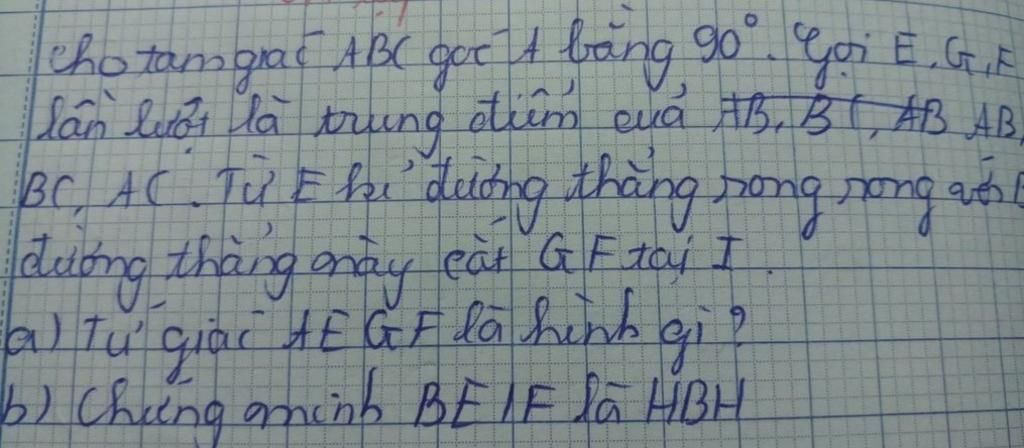 Cho tam giác ABC góc A bằng 90°. Gọi E, G, F
lần lượt là trung điểm của AB, BC, AB AB,
BC, AC. Từ E kẻ đường thẳng song song với
đường thẳng này cắt GF tại I.
a) Tứ giác AEGF là hình gì?
b) Chứng minh BEIF là HBH